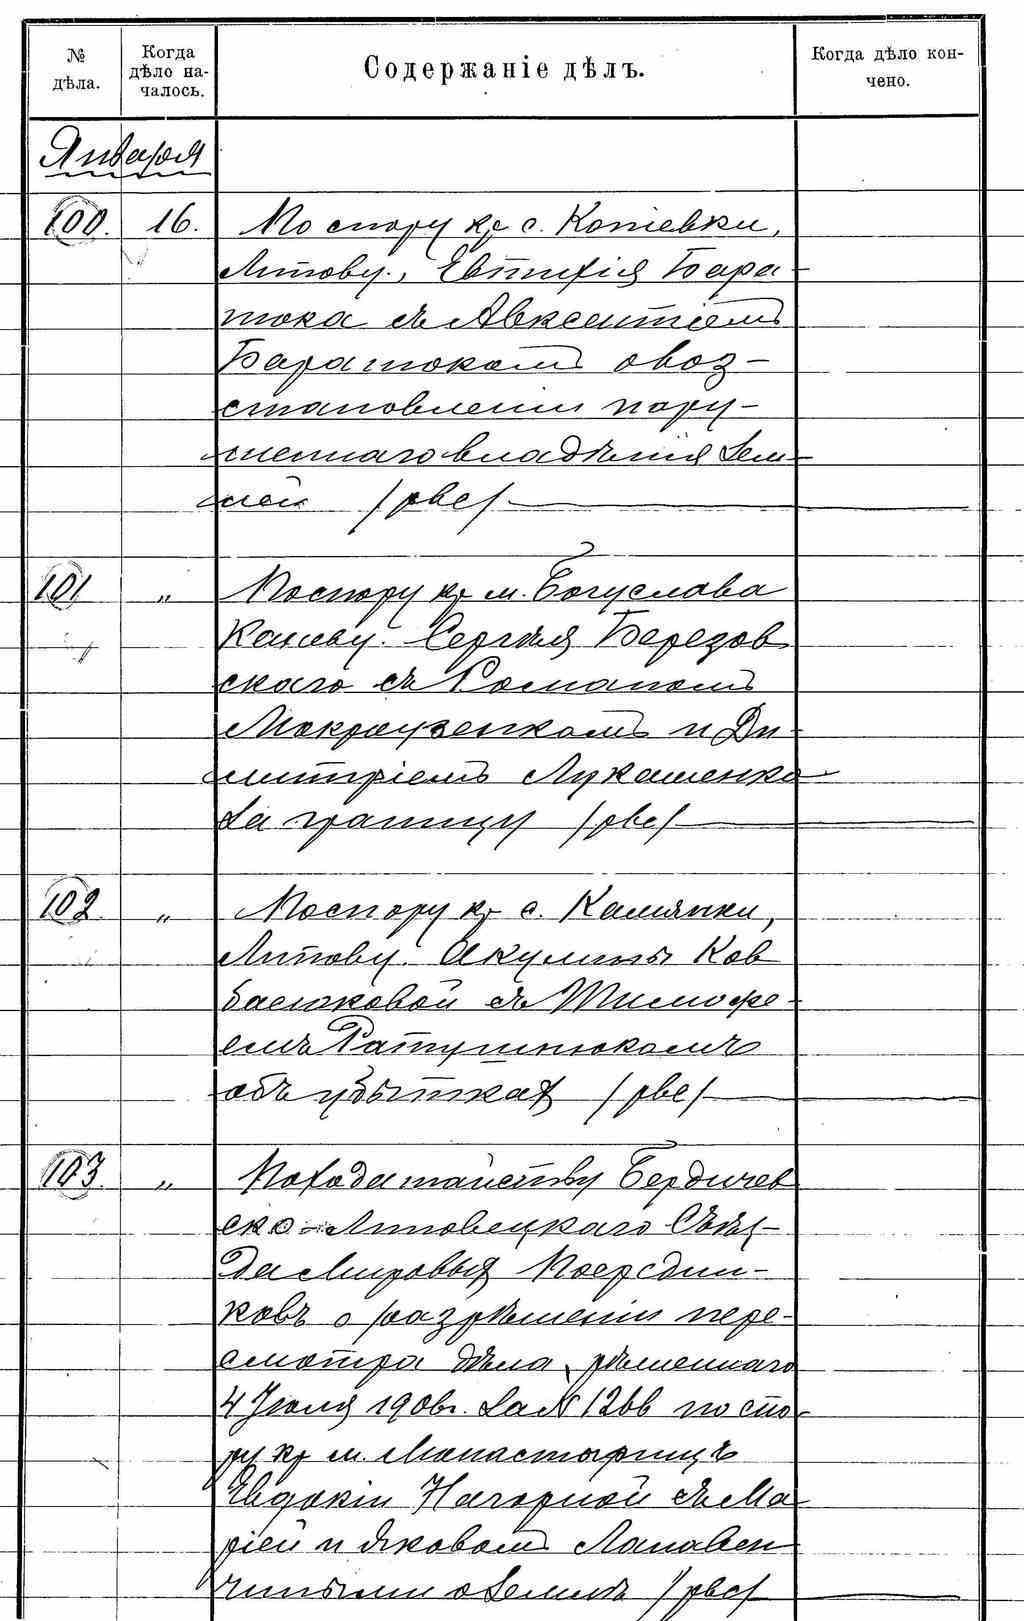 № дѣла.
Когда дѣло на-
чалось.
Содержаніе дѣлъ.
Когда дѣло кон-
чено.
Января
100. 16. По спору кр с. Копіевки,
Липову., Евтихія Бара-
тока съ Авксентіемъ
Баратокомъ о воз-
становленіи нару-
шеннаго владѣнія зем-
лей /рве/
101 „ По спору кр м. Богуслава
Каневу. Сергѣя Березов
скаго съ Романомъ
Мокроузенкомъ и Ди-
митріемъ Лукашенко
за границу /рве/
102 „ По спору кр с. Камянки,
Липову. Акулины Ков
басюковой съ Тимофе-
емъ Ратушнюкомъ
объ убыткахъ /рве/
103. „ По ходатайству Бердичев
ско-Липовецкаго Съѣз-
да Мировыхъ Посредни-
ковъ о разрѣшеніи пере-
смотра дѣла, рѣшеннаго
4 Іюля 1906г. за N 1266 по спо-
ру кр м. Монастырищъ
Евдокіи Нагорной съ Ма
ріей и Яковомъ
о землѣ /рве/